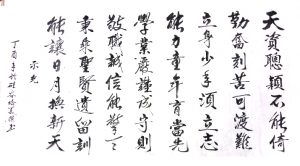 天資聰穎不能倚
勤奮刻苦可渡難
立身少年須立志
能力童年育當先
學業嚴謹守則
敬職誠信能
秉承聖賢遺留訓
能讓日月換新天
示兒
丁酉年